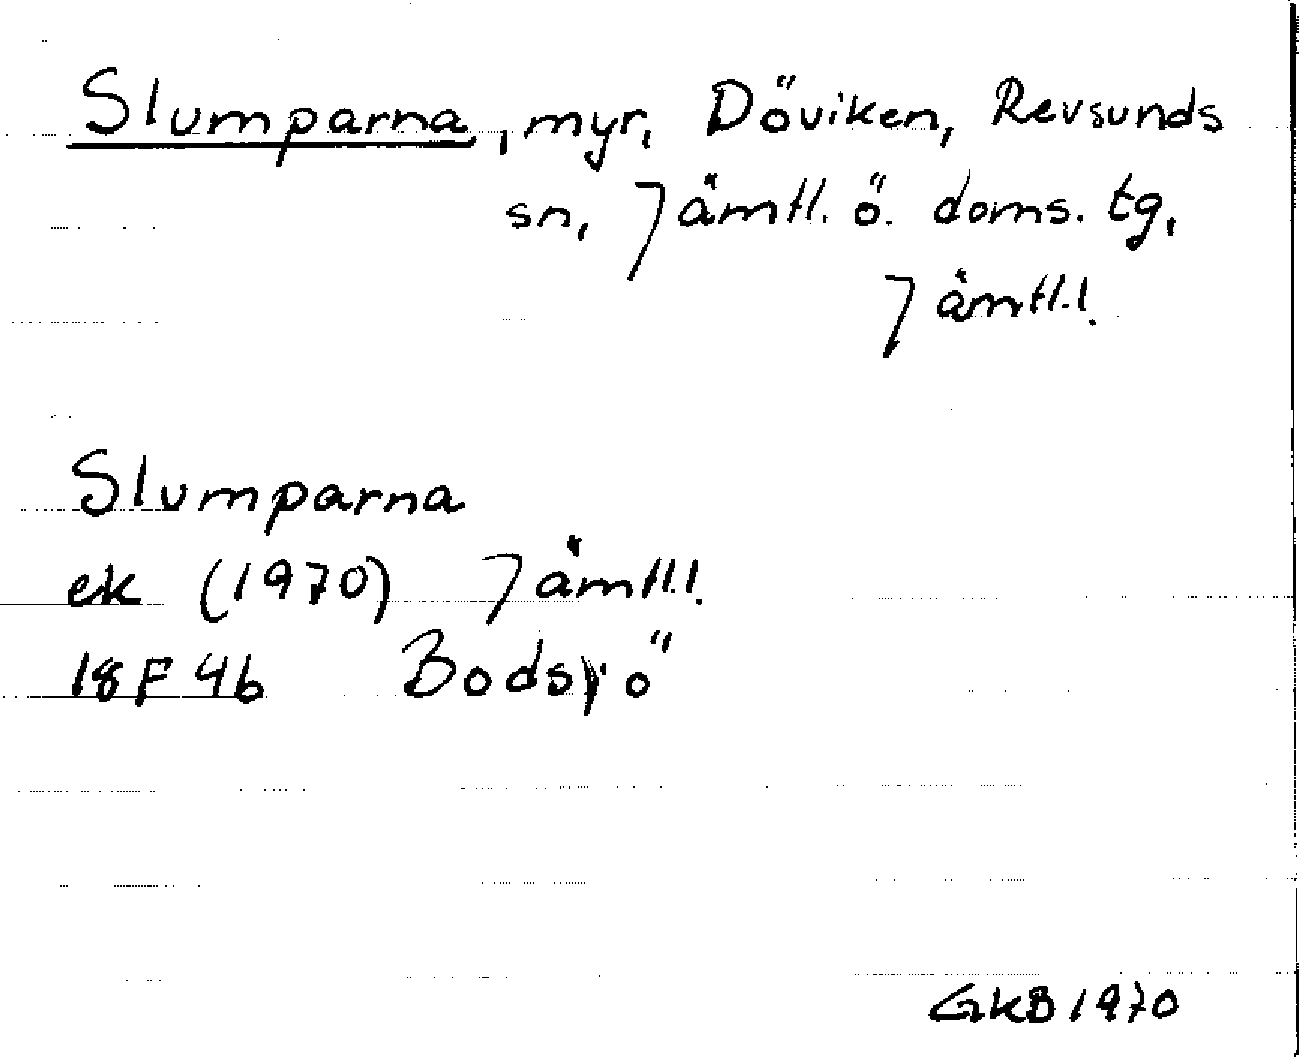 Slumparna, myr, Döviken, Revsunds
sn, Jämtl. ö. doms. tg,
Jämtl.l.
Slumparna
ek (1970) Jämtl.l.
18F4b Bodsjö
GKB1970